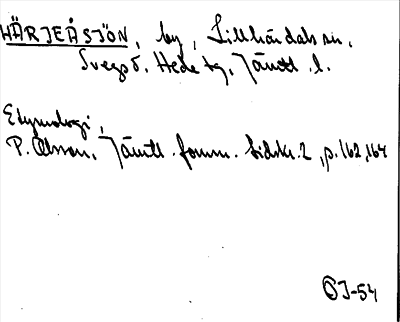 HÄRJEÅSJÖN, by, Lillhärdals sn,
Svegs o. Hede tg, Jämtl. l.
Etymologi,
P. Olsson, Jämtl. fornm. tidskr. 2, p. 162, 164
OJ-54